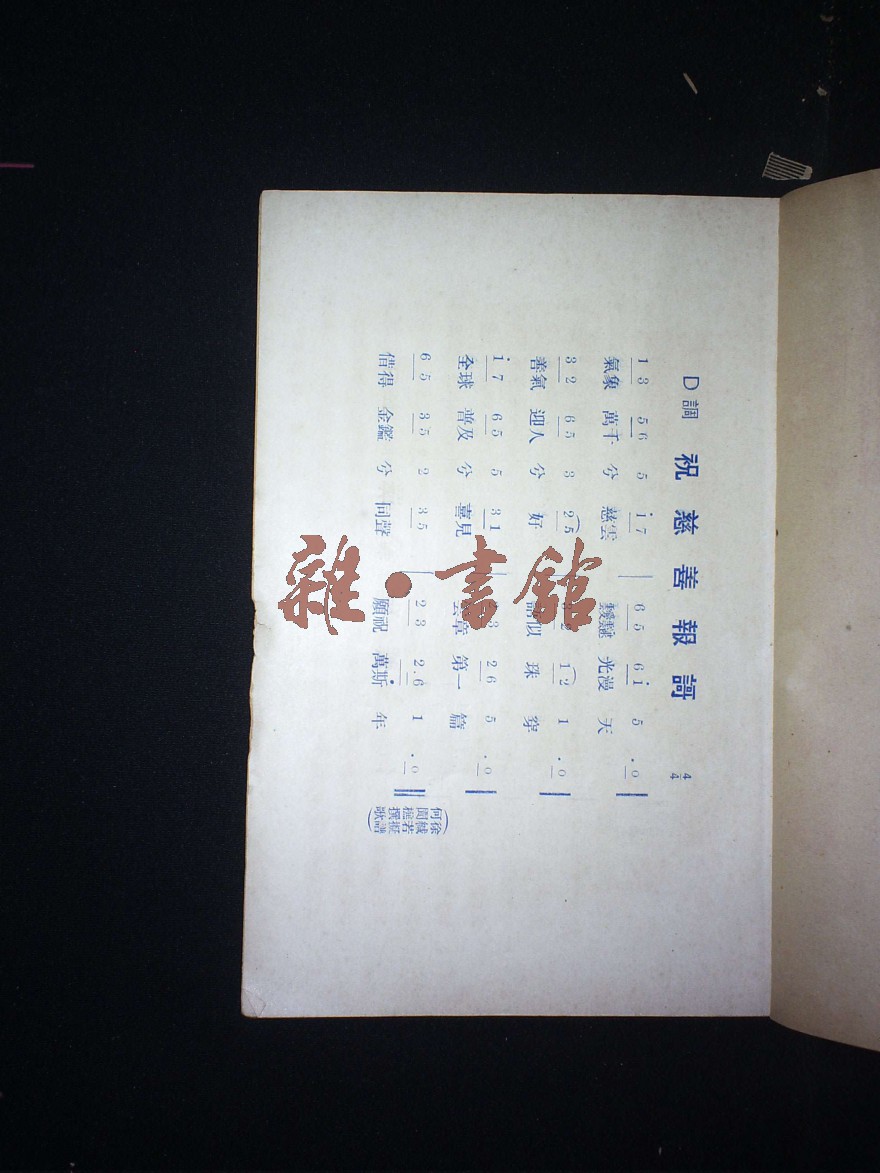 D調 祝慈善報詞 4/4
1 3 5 6 5 i 7 | 6 5 6 i 5 . 0
氣象 萬千 兮 慈雲 靉靆 光漫 天
3 2 6 5 3 2 5 1 2 1 . 0
善氣 迎人 兮 好 似 珠 穿
i 7 6 5 5 3 1 3 2 6 5 . 0
全球 普及 兮 喜見 章 第一 篇
6 5 3 5 2 3 5 | 2 3 2 . 6 1 . 0
借得 金鑑 兮 同聲 願祝 萬斯 年
徐械若挺譜
何閬樵撰歌
雜·書館